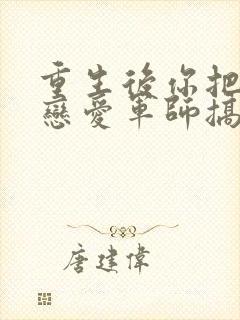 重生後你把
戀愛軍師搞
唐建偉